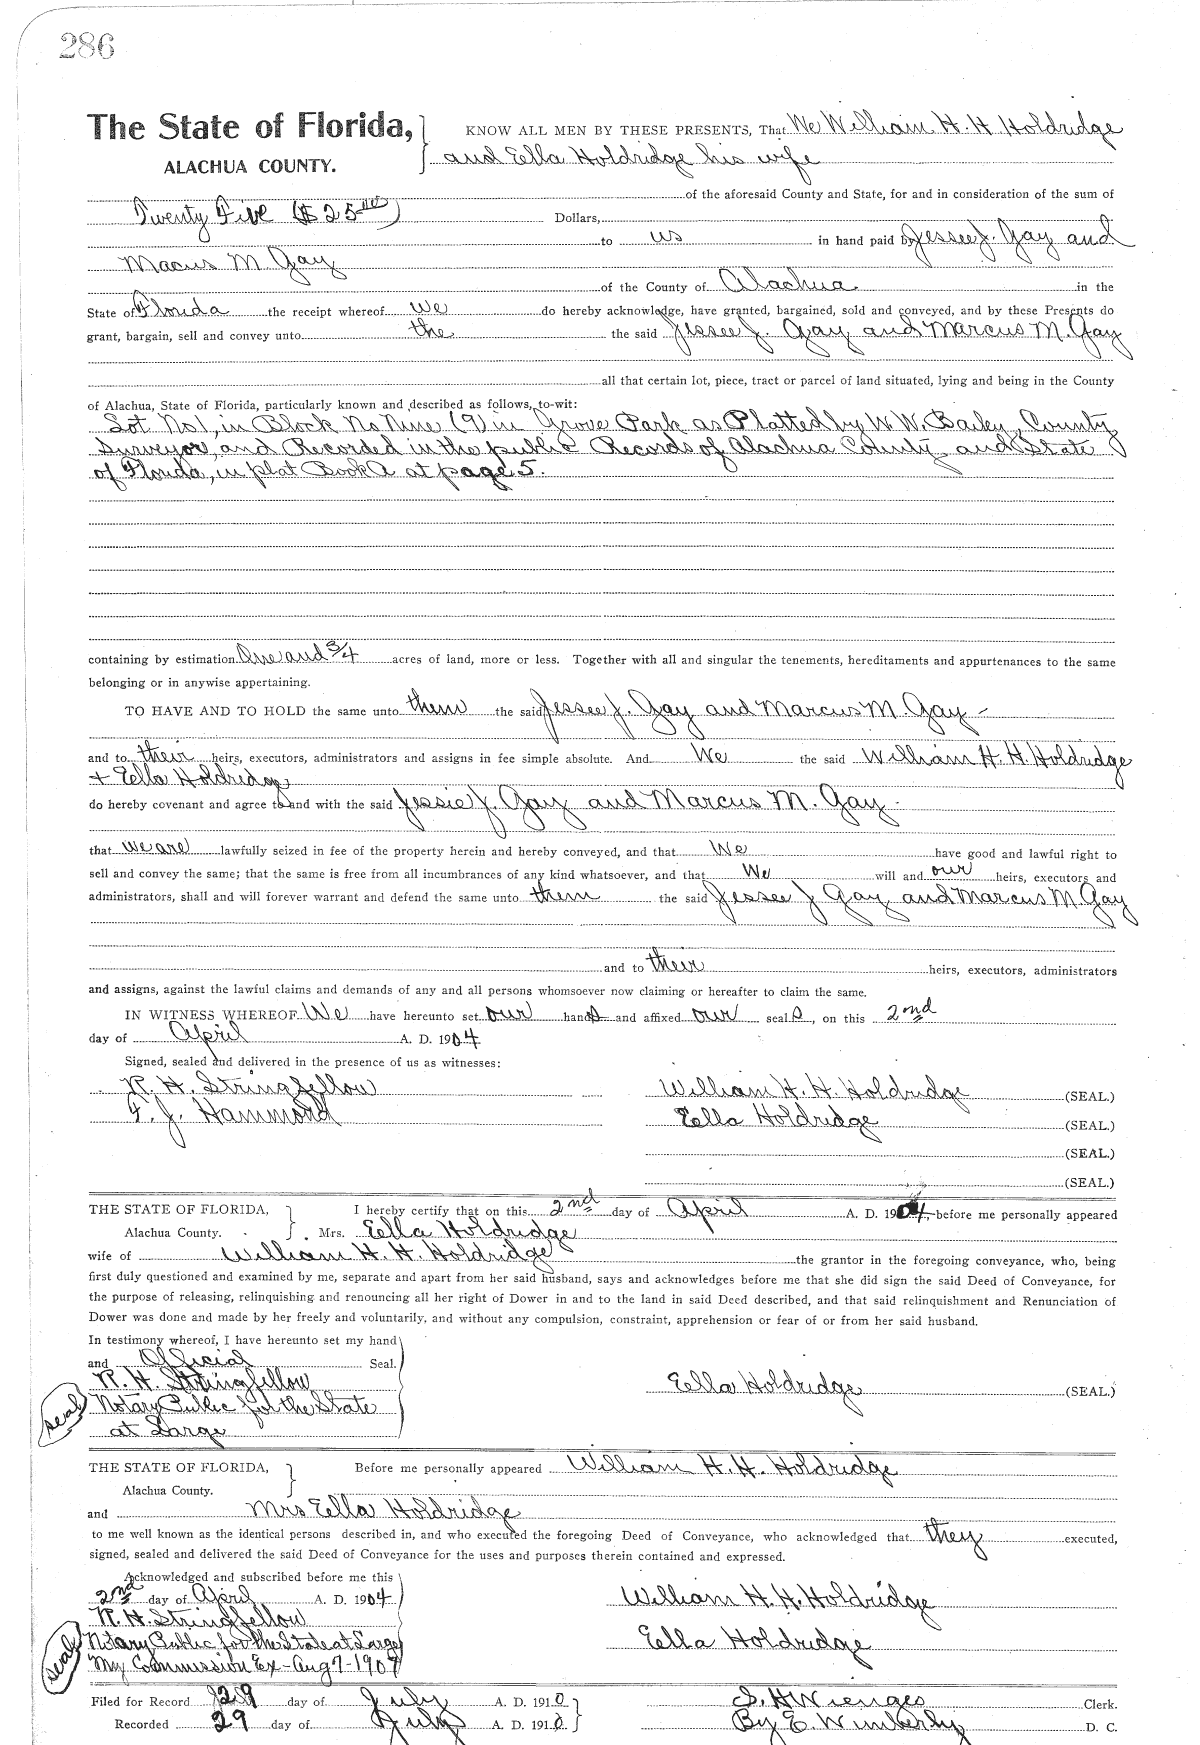 286
The State of Florida, KNOW ALL MEN BY THESE PRESENTS, That We William H. H Holdridge
ALACHUA COUNTY. and Ella Holdridge his wife
of the aforesaid County and State, for and in consideration of the sum of
Twenty Five ($25 00) Dollars,
to us in hand paid by Jessee J. Gay and
Macus M Gay
of the County of Alachua in the
State of Florida the receipt whereof we do hereby acknowledge, have granted, bargained, sold and conveyed, and by these Presents do
grant, bargain, sell and convey unto the the said Jessee J. Gay and Marcus M. Gay
all that certain lot, piece, tract or parcel of land situated, lying and being in the County
of Alachua, State of Florida, particularly known and described as follows, to-wit:
Lot No 1, in Block No Nine (9) in Grove Park as Platted by W. W. Bailey, County
Surveyor, and Recorded in the public Records of Alachua County, and State
of Florida, in plat Book A at page 5.
containing by estimation One and 3/4 acres of land, more or less. Together with all and singular the tenements, hereditaments and appurtenances to the same
belonging or in anywise appertaining.
TO HAVE AND TO HOLD the same unto them the said Jessee J. Gay and Marcus M. Gay -
and to their heirs, executors, administrators and assigns in fee simple absolute. And We the said William H. H. Holdridge
+ Ella Holdridge
do hereby covenant and agree to and with the said Jessie J. Gay and Marcus M. Gay -
that we are lawfully seized in fee of the property herein and hereby conveyed, and that We have good and lawful right to
sell and convey the same; that the same is free from all incumbrances of any kind whatsoever, and that We will and our heirs, executors and
administrators, shall and will forever warrant and defend the same unto them the said Jessee J Gay and Marcus M. Gay
and to their heirs, executors, administrators
and assigns, against the lawful claims and demands of any and all persons whomsoever now claiming or hereafter to claim the same.
IN WITNESS WHEREOF We have hereunto set our hands and affixed our seals, on this 2nd
day of April A. D. 1904.
Signed, sealed and delivered in the presence of us as witnesses:
R. H. Stringfellow William H. H. Holdridge (SEAL.)
F. J. Hammond Ella Holdridge (SEAL.)
(SEAL.)
(SEAL.)
THE STATE OF FLORIDA, I hereby certify that on this 2nd day of April A. D. 1904, before me personally appeared
Alachua County. Mrs. Ella Holdridge
wife of William H. H. Holdridge the grantor in the foregoing conveyance, who, being
first duly questioned and examined by me, separate and apart from her said husband, says and acknowledges before me that she did sign the said Deed of Conveyance, for
the purpose of releasing, relinquishing and renouncing all her right of Dower in and to the land in said Deed described, and that said relinquishment and Renunciation of
Dower was done and made by her freely and voluntarily, and without any compulsion, constraint, apprehension or fear of or from her said husband.
In testimony whereof, I have hereunto set my hand
and Official Seal.
R. H. Stringfellow Ella Holdridge (SEAL.)
seal Notary Public for the State
at Large
THE STATE OF FLORIDA, Before me personally appeared William H. H. Holdridge
Alachua County.
and Mrs Ella Holdridge
to me well known as the identical persons described in, and who executed the foregoing Deed of Conveyance, who acknowledged that they executed,
signed, sealed and delivered the said Deed of Conveyance for the uses and purposes therein contained and expressed.
Acknowledged and subscribed before me this
2nd day of April A. D. 1904 William H. H. Holdridge
R. H. Stringfellow
seal Notary Public for the State at Large Ella Holdridge
My Commission Ex - Aug 7 - 1907
Filed for Record 29 day of July A. D. 1910 S. H Wienges Clerk.
Recorded 29 day of July A. D. 1910. By E. Wimberly D. C.